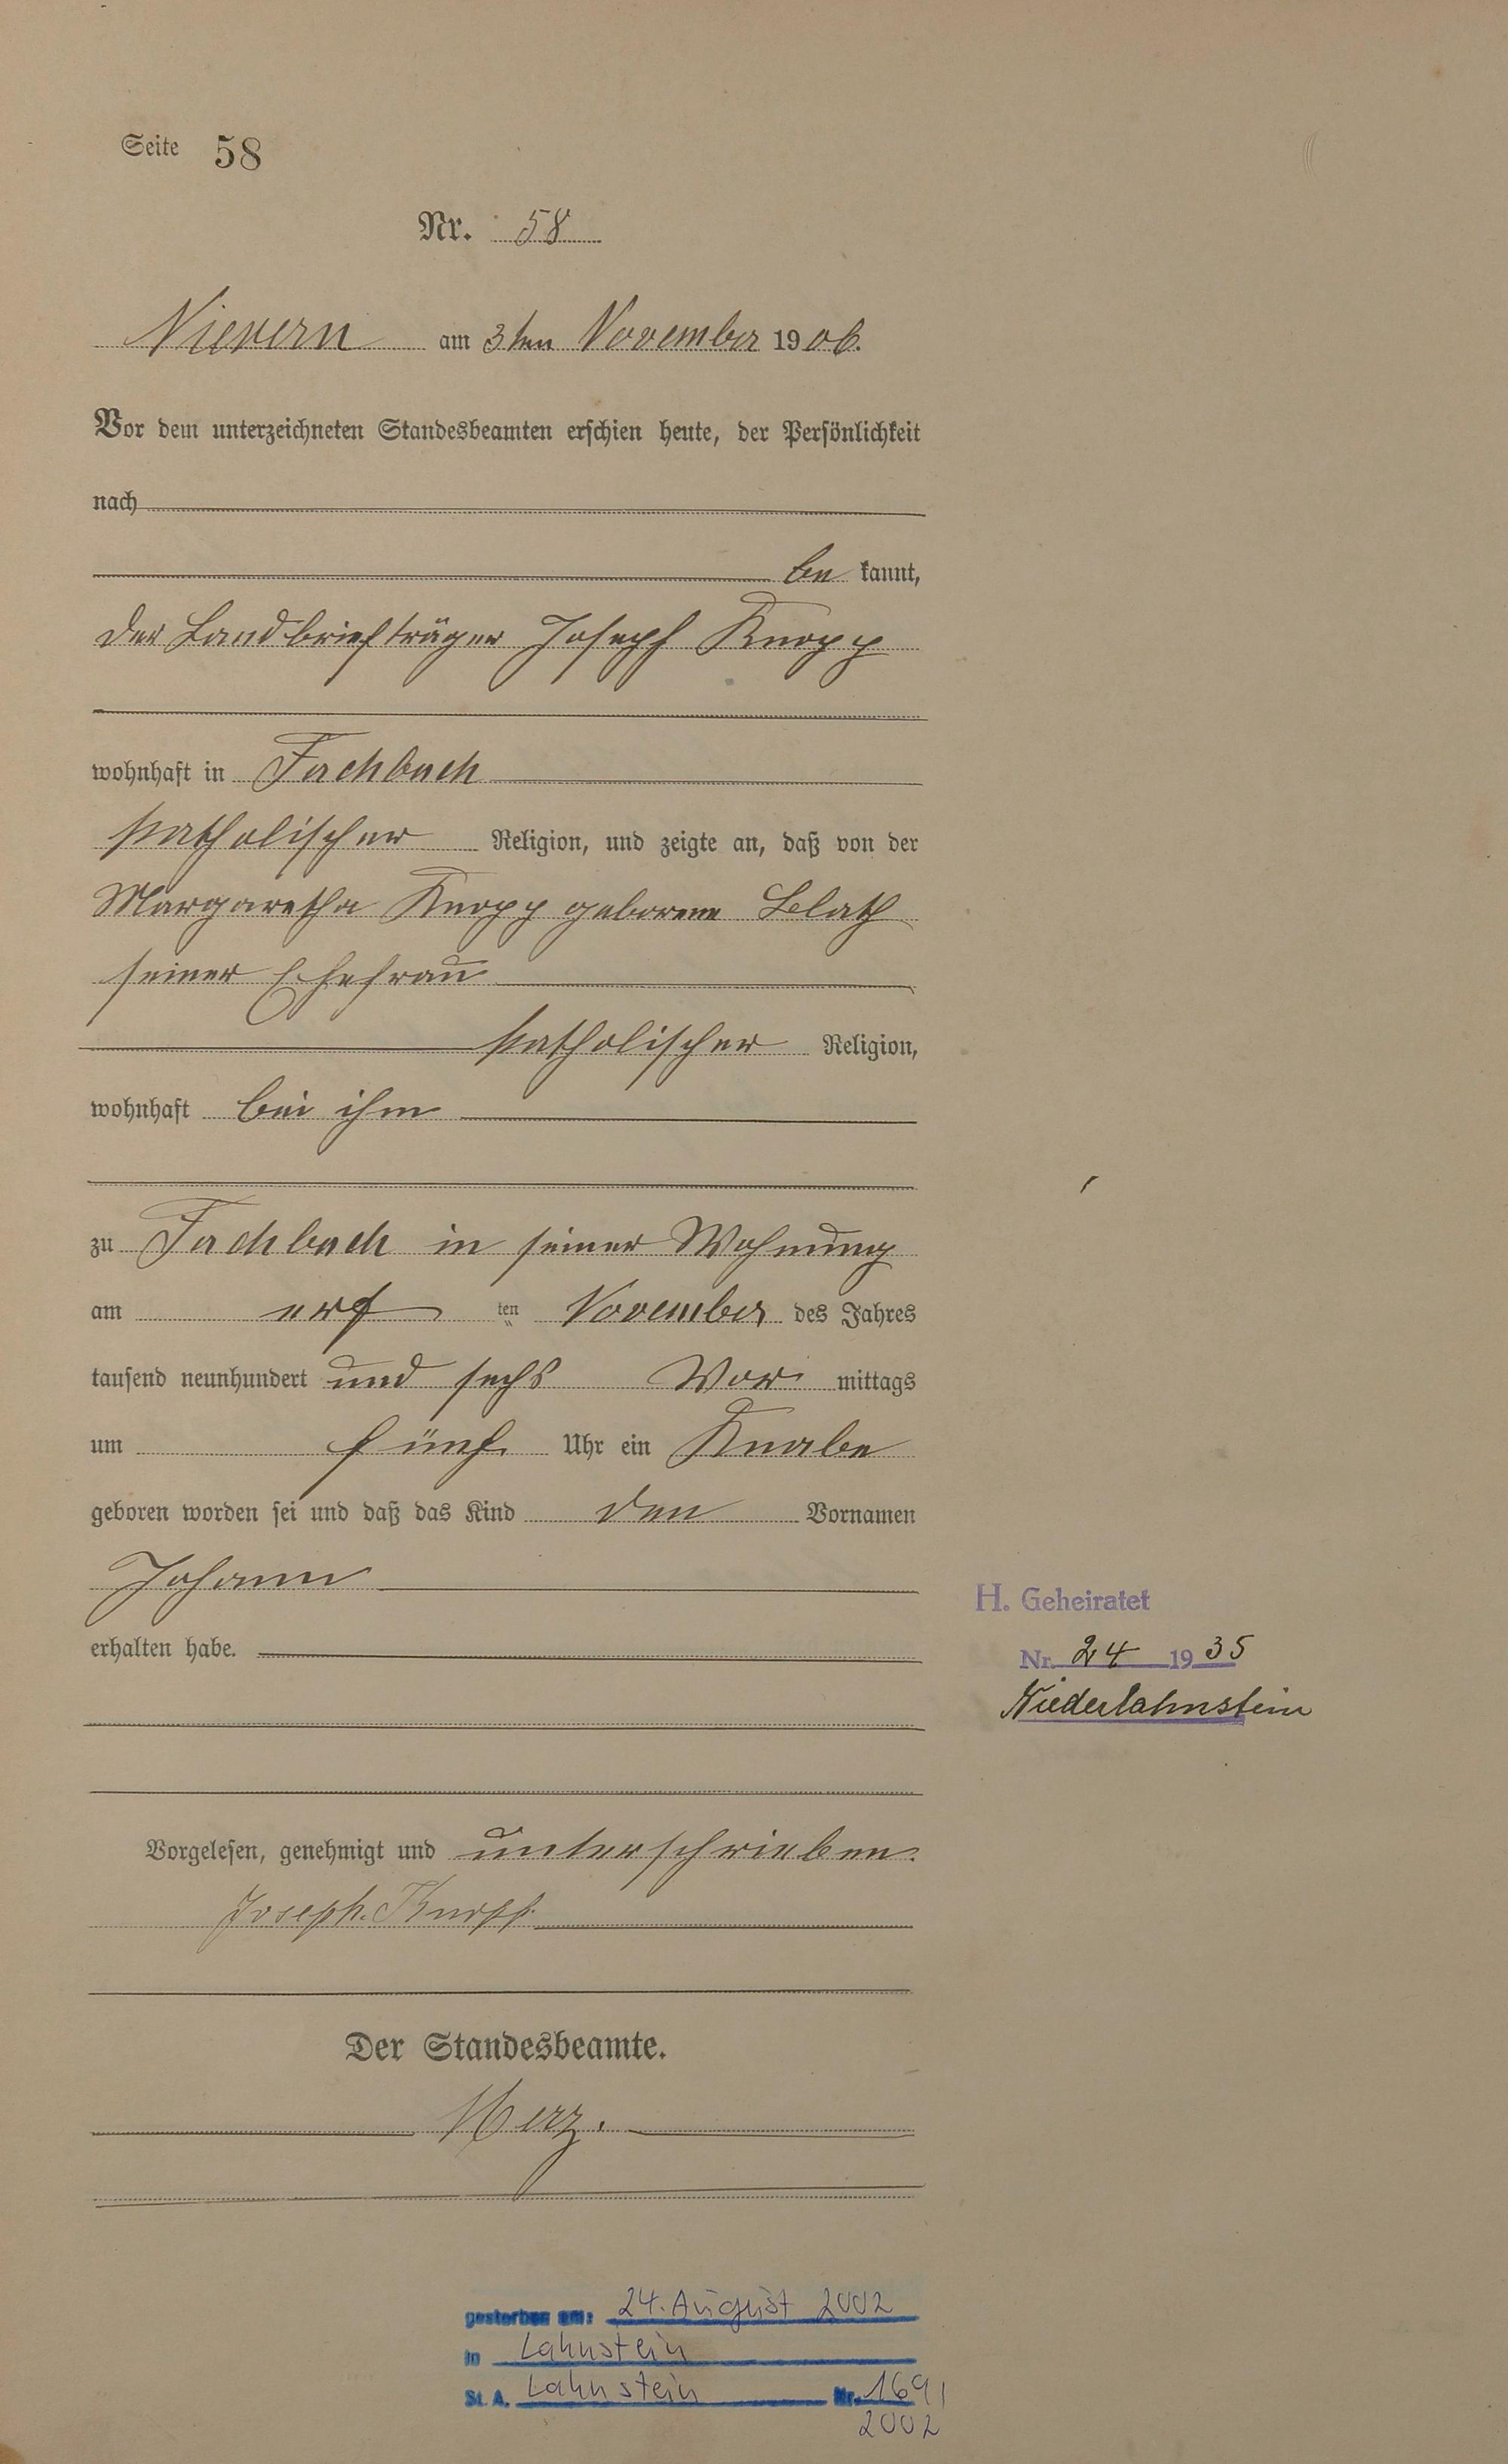 Seite 58
Nr. 58
Nievern am 3ten November 1906.
Vor dem unterzeichneten Standesbeamten erschien heute, der Persönlichkeit
nach
be kannt,
der Landbriefträger Joseph Knopp
wohnhaft in Fachbach
katholischer Religion, und zeigte an, daß von der
Margaretha Knopp geborene Blath
seiner Ehefrau
katholischer Religion,
wohnhaft bei ihm
zu Fachbach in seiner Wohnung
am ten November des Jahres
tausend neunhundert und sechs Vor mittags
um fünf Uhr ein Knabe
geboren worden sei und daß das Kind den Vornamen
Johann
erhalten habe.
H. Geheiratet
Nr. 24 1935
Niederlahnstein
Vorgelesen, genehmigt und unterschrieben.
Joseph Knopp
Der Standesbeamte.
Merz.
gestorben am: 24. August 2002
in Lahnstein
St. A. Lahnstein Nr. 169/
2002